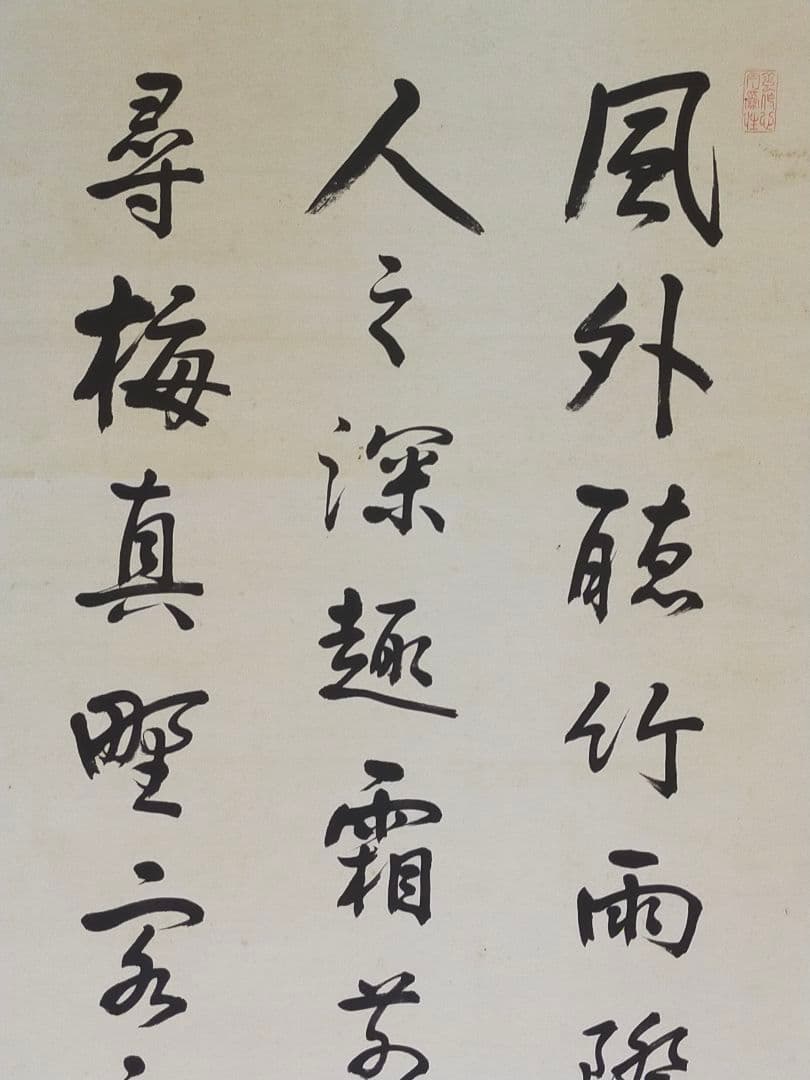 風外聴竹雨
人之深趣霜
尋梅真野客